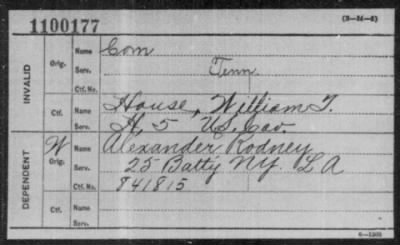 1100177 (3-24-6)
INVALID
Orig. Name Com
Serv. Tenn
Ctf. No.
Ctf. House, William T.
H, 5 U.S. Cav.
DEPENDENT
W Orig. Name Alexander Rodney
Serv. 25 Batty NY. L A
Ctf. No. 841815
Ctf. Name
Serv.